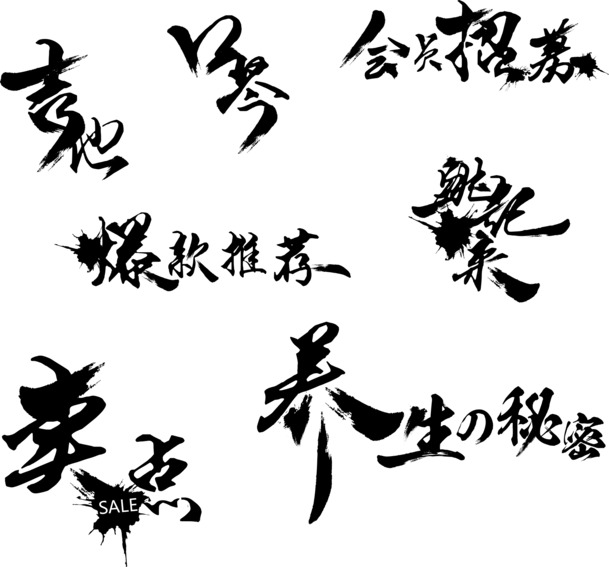 吉他
口琴
会员招募
跳起来
爆款推荐
养生の秘密
卖点
SALE